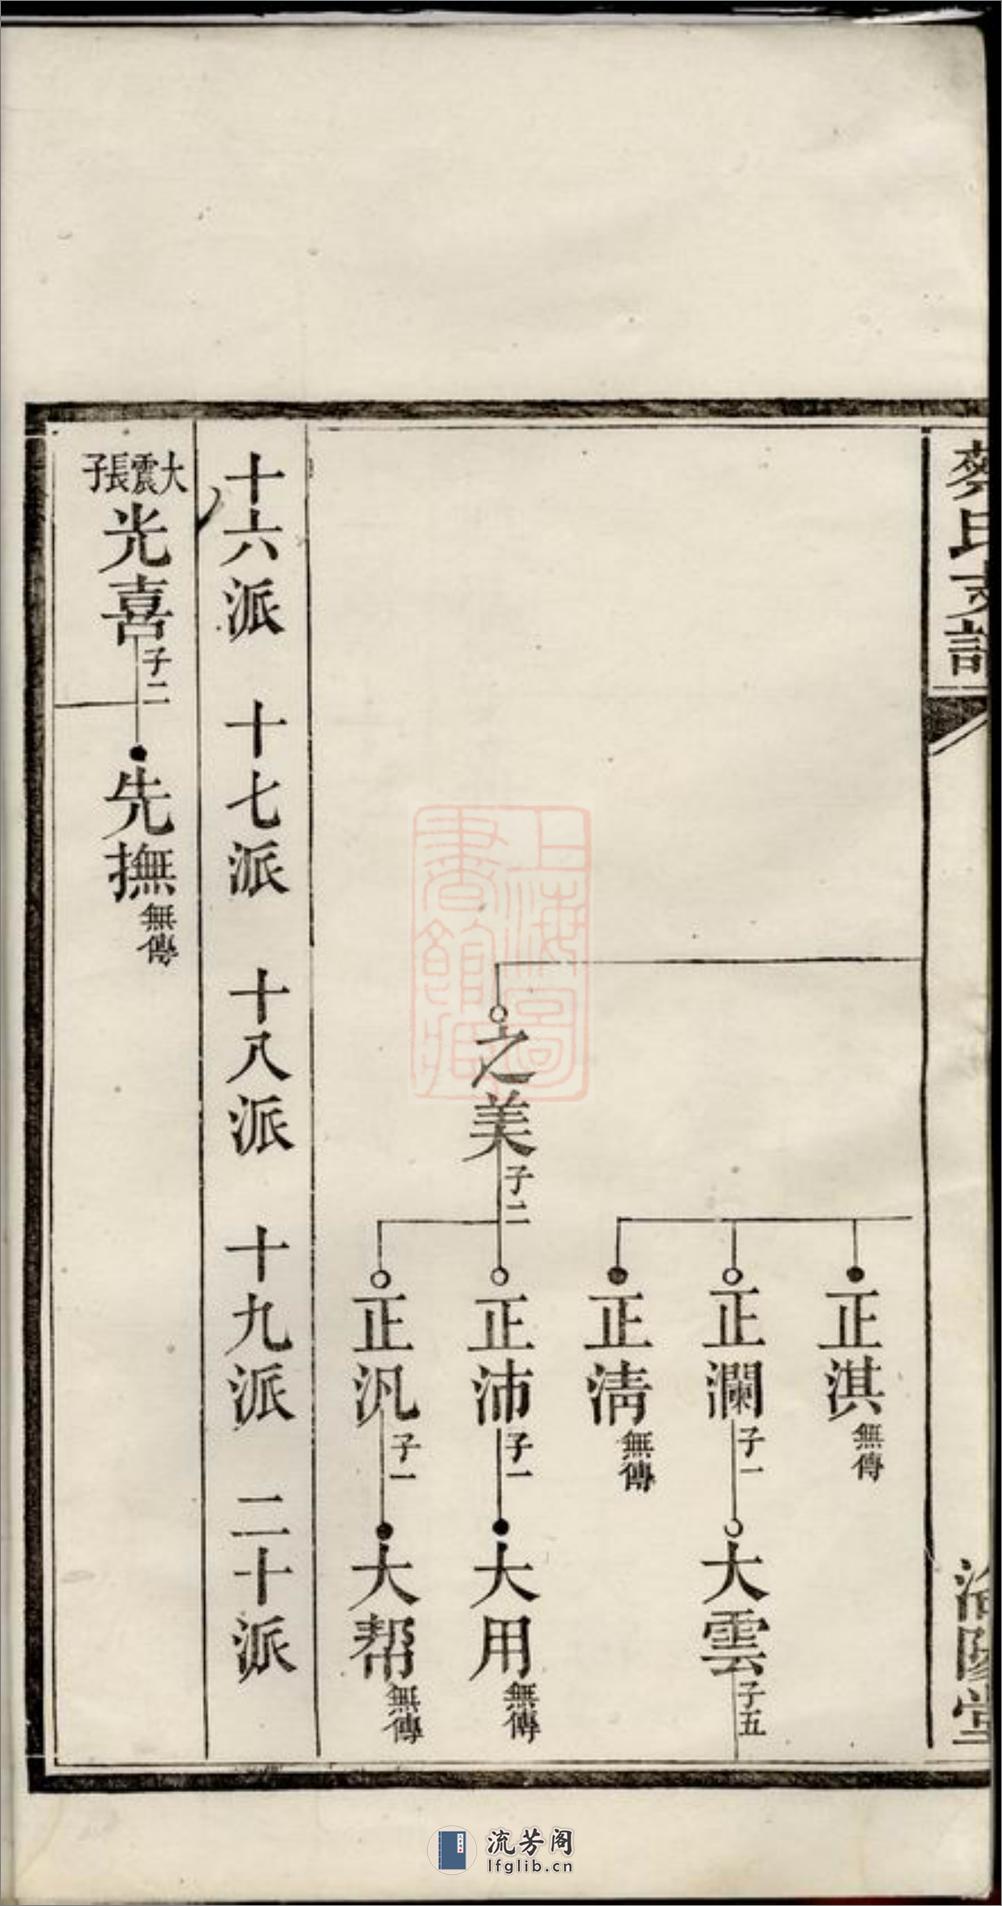 蔡氏支譜
濟陽堂
正淇無傳
正瀾子一
大雲子五
正淸無傳
之美子二
正沛子一
大用無傳
正汎子一
大幇無傳
十六派 十七派 十八派 十九派 二十派
大震長子
光喜子二
先撫無傳
上海圖書館藏
流芳阁
lfglib.cn